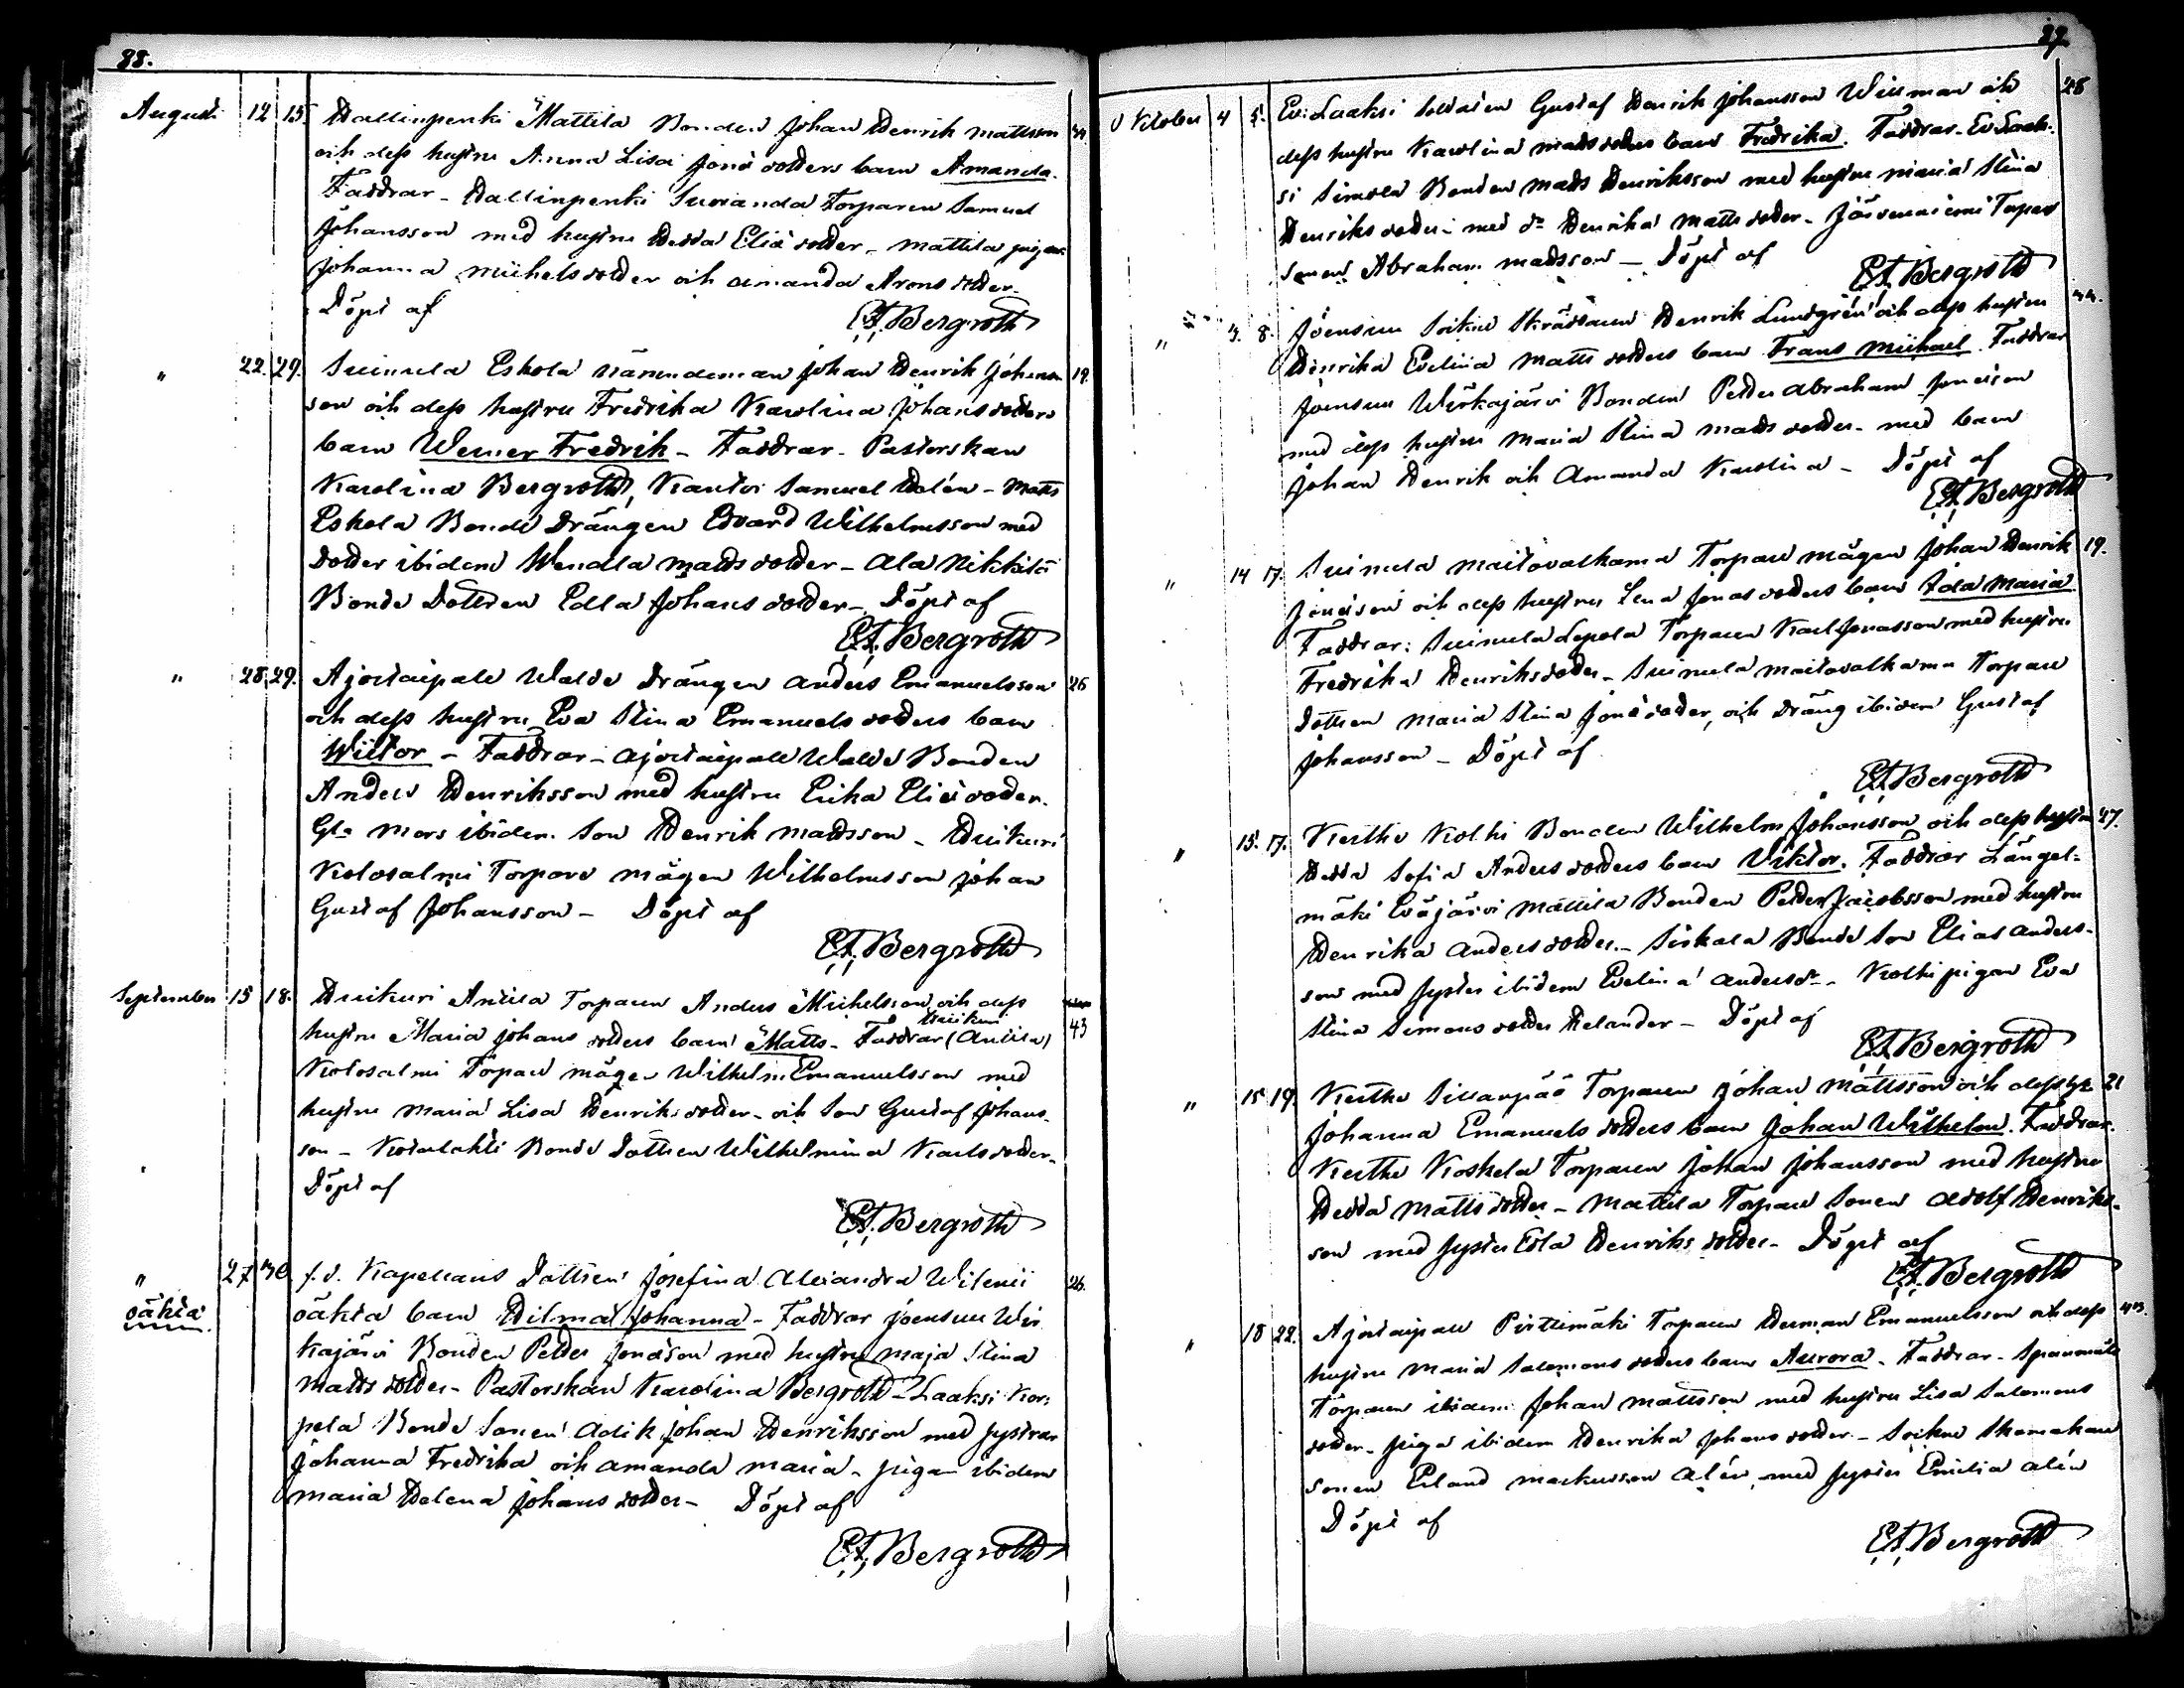 88.
Augusti 12 15 Hallinpenki Mattila Bonden Johan Henrik Mattsson
och dess hustru Anna Lisa Jonæ dotters barn Amanda.
Faddrar - Hallinpenki Suoranda Torparen Samuel
Johansson med hustru Hedda Eliæ dotter - Mattila pigan
Johanna Michelsdotter och Amanda Arons dotter.
Döpt af
EA Bergroth
" 22. 29. Suinula Eskola nämndeman Johan Henrik Johans 19.
son och dess hustru Fredrika Karolina Johans dotters
barn Werner Fredrik - Faddrar - Pastorskan
Karolina Bergroth, Kantor Samuel Helén - Matts
Eskola Bonde Drängen Edvard Wilhelmsson med
dotter ibidem Wendla Matts dotter - Ala Nikkilä
Bonde Dottren Edla Johans dotter - Döpt af
EA Bergroth
" 28 29. Ajostaipale Walde Drängen Anders Emanuelsson 26
och dess hustru Eva Stina Emanuels dotters barn
Wictor - Faddrar - Ajostaipale Walde Bonden
Anders Henriksson med hustru Erika Eliæ dotter.
Gla mors ibidem Son Henrik Mattsson - Huikuri
Kolosalmi Torpare mågen Wilhelmsson Johan
Gustaf Johansson - Döpt af
EA Bergroth
September 15 18. Huikuri Anttila Torparen Anders Michelsson och dess
hustru Maria Johans dotters barn Matts - Faddrar (Anttila) 43
Huikuri
Kolosalmi Torpare mågen Wilhelm Emanuelsson med
hustru Maria Lisa Henriks dotter - och Son Gustaf Johans
son - Koiulahti Bonde Dottren Wilhelmina Karls dotter -
Döpt af
EA Bergroth
" 27 30 f.d. Kapellans Dottren Josefina Alexandra Wilenii 26.
oäkta oäkta barn Hilma Johanna - Faddrar Joensuu Wir
kajärvi Bonden Petter Jonæson med hustru Maja Stina
Matts dotter - Pastorskan Karolina Bergroth - Laaksi Kor
pela Bonde Sonen Adik Johan Henriksson med systrar
Johanna Fredrika och Amanda Maria - pigan ibidem
Maria Helena Johans dotter - Döpt af
EA Bergroth
October 4 5. Ev: Laaksi Soldaten Gustaf Henrik Johansson Wiiman och 28
dess hustru Karolina Matts dotters barn Fredrika. Faddrar - Ev Laak-
si Simola Bonden Matts Henriksson med hustru Maria Stina
Henriks dotter - med do Henrika Matts dotter - Järvenniemi Torpare
sonen Abraham Mattsson - Döpt af
EA Bergroth
" 3. 8. Joensuu Soikne Skräddaren Henrik Lundgrén och dess hustru
Henrika Evelina Matts dotters barn Frans Michael. Faddrar
Joensuu Wirkajärvi Bonden Petter Abraham Jonæson
med dess hustru Maria Stina Matts dotter - med barn
Johan Henrik och Amanda Karolina - Döpt af
EA Bergroth
" 14 17. Suinula Maitovalkama Torpare mågen Johan Henrik 19.
Jonæson och dess hustru Lena Jonas dotters barn Ida Maria
Faddrar: Suinula Lepola Torparen Karl Jonasson med hustru
Fredrika Henriksdotter - Suinula Maitovalkama Torpare
Dottren Maria Stina Jonæ dotter, och Dräng ibidem Gustaf
Johansson - Döpt af
EA Bergroth
" 15. 17. Kertte Kolhi Bonden Wilhelm Johansson och dess hustru 47.
Hedda Sofia Anders dotters barn Viktor. Faddrar Längel-
mäki Eväjärvi Mattila Bonden Petter Jacobsson med hustru
Henrika Anders dotter - Siskala Bonde Son Elias Anders-
son med syster ibidem Evelina Andersdr - Kolhi pigan Eva
Stina Simons dotter Helander - Döpt af
EA Bergroth
" 15 19. Kertte Sillanpää Torparen Johan Mattsson och dess h 21
Johanna Emanuels dotters barn Johan Wilhelm. Faddrar.
Kertte Koskela Torparen Johan Johansson med hustru
Hedda Matts dotter - Mattila Torpare Sonen Adolf Henriks-
son med syster Edla Henriks dotter - Döpt af
EA Bergroth
" 18 22. Ajostaipale Pirttimäki Torparen Herman Emanuelsson och dess
hustru Maria Salomons dotters barn Aurora - Faddrar -
Torparen ibidem Johan Mattsson med hustru Lisa Salomons
dotter - piga ibidem Henrika Johans dotter - Soikne Skomakare
sonen Erland Markusson Alén med syster Emilia Alén
Döpt af
EA Bergroth